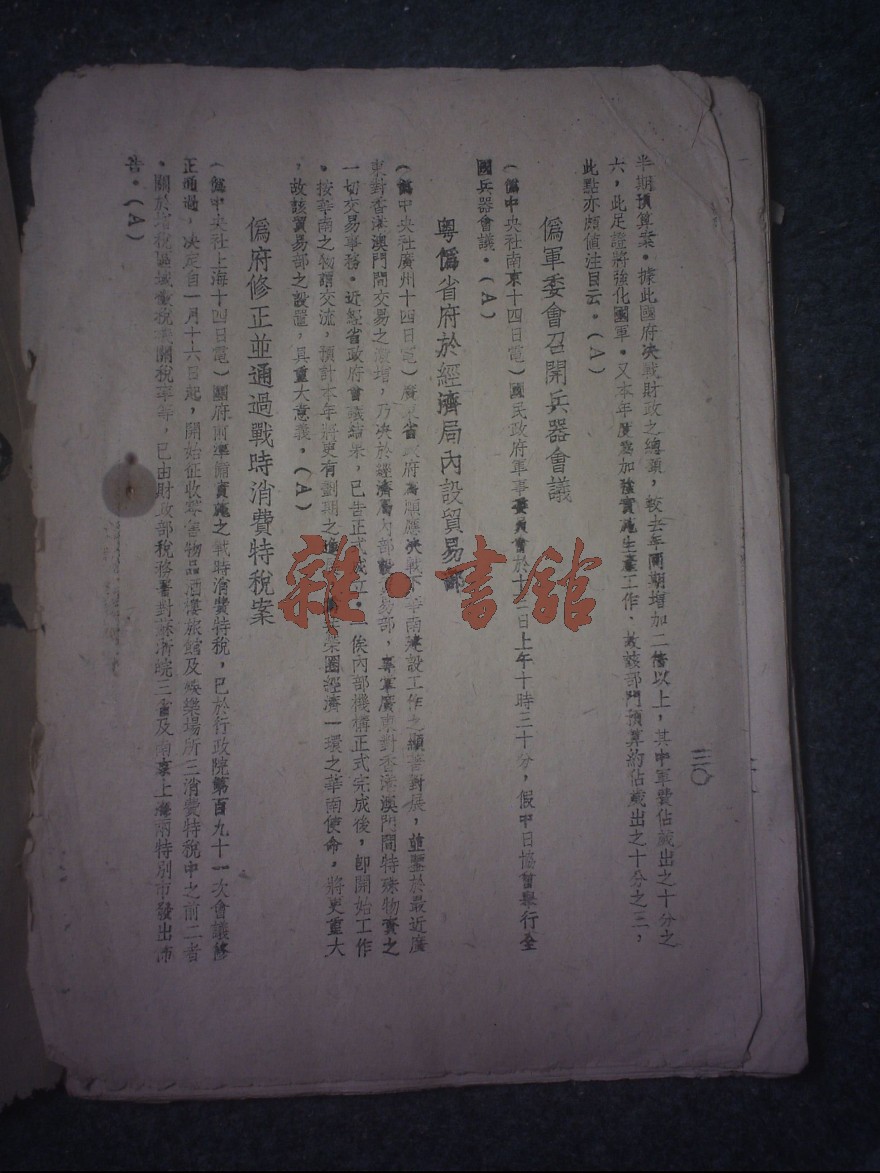 半期預算案·據此國府决戰財政之總額，較去年同期增加二倍以上，其中軍費佔歲出之十分之
六，此足證將強化國軍·又本年度爲加強實施生產工作·故該部門預算約佔歲出之十分之三，
此點亦頗值注目云·（A）
僞軍委會召開兵器會議
（僞中央社南京十四日電）國民政府軍事委員會於十一日上午十時三十分，假中日協會舉行全
國兵器會議·（A）
粵僞省府於經濟局內設貿易部
（僞中央社廣州十四日電）廣東省政府爲順應决戰下華南建設工作之顯著對展，並鑒於最近廣
東對香港澳門間交易之激增，乃决於經濟局內部設貿易部，專掌廣東對香港澳門間特殊物資之
一切交易事務·近經省政府會議結果，已告正式成立·一俟內部機構正式完成後，卽開始工作
·按華南之物資交流，預計本年將更有劃期之進 共榮圈經濟一環之華南使命，將更重大
，故該貿易部之設置，具重大意義·（A）
僞府修正並通過戰時消費特稅案
（僞中央社上海十四日電）國府前準備實施之戰時消費特稅，已於行政院第百九十一次會議修
正通過，决定自一月十六日起，開始征收奢侈物品酒樓旅館及娛樂場所三消費特稅中之前二者
·關於增稅區域徵稅 關稅率等，已由財政部稅務署對蘇浙皖三省及南京上海兩特別市發出佈
告·（A）
三〇
雜·書館